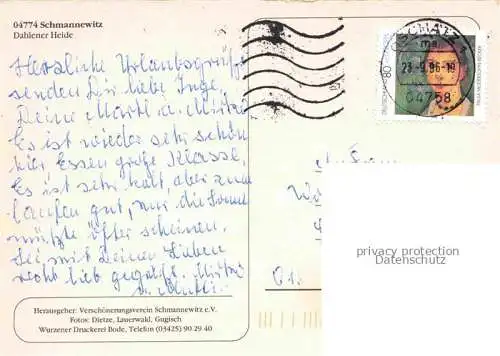 04774 Schmannewitz
Dahlener Heide
Herzliche Urlaubsgrüße
senden Dir liebe Inge,
Deine Martl u.
Es ist wieder sehr schön
hier Essen große Klasse,
Es ist sehr kalt, aber zum
laufen gut, nur die Sonne
müßte öfter scheinen.
Sei mit Deinen Lieben
recht lieb gegrüßt.
u.
Herausgeber: Verschönerungsverein Schmannewitz e.V.
Fotos: Dietze, Lauerwald, Gugisch
Wurzener Druckerei Bode, Telefon (03425) 90 29 40
OSCHATZ 1
ma
23.-9.96-18
04758
80
DEUTSCHLAND
PAULA MODERSOHN-BECKER
privacy protection
Datenschutz